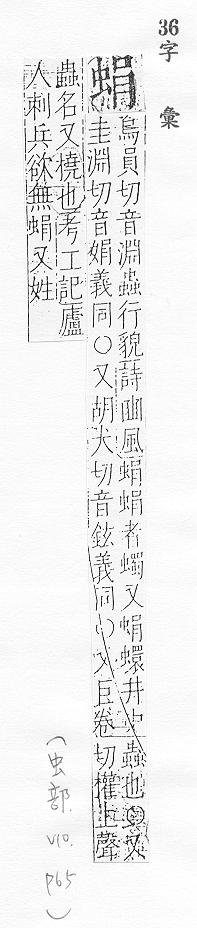 36
字彙
蜎
烏員切音淵蟲行貌詩豳風蜎蜎者蠋又蜎蠉井中蟲也〇又
圭淵切音娟義同〇又胡犬切音鉉義同〇又巨卷切權上聲
蟲名又橈也考工記廬
人刺兵欲無蜎又姓
(虫部. V10. P65)